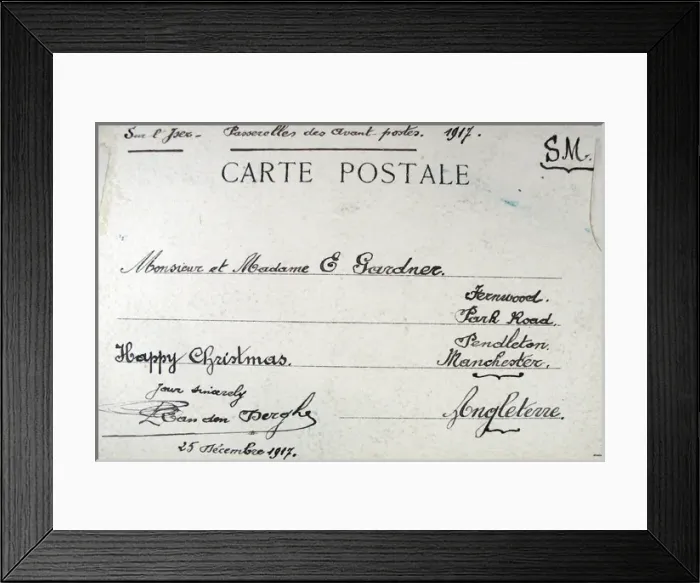 Sur l'Yser - Passerelles des avant-postes. 1917.
S.M.
CARTE POSTALE
Monsieur et Madame E Gardner.
Fernwood.
Park Road.
Pendleton.
Happy Christmas.
Manchester.
Your sincerely
Van den Berghe
Angleterre.
25 Décembre 1917.